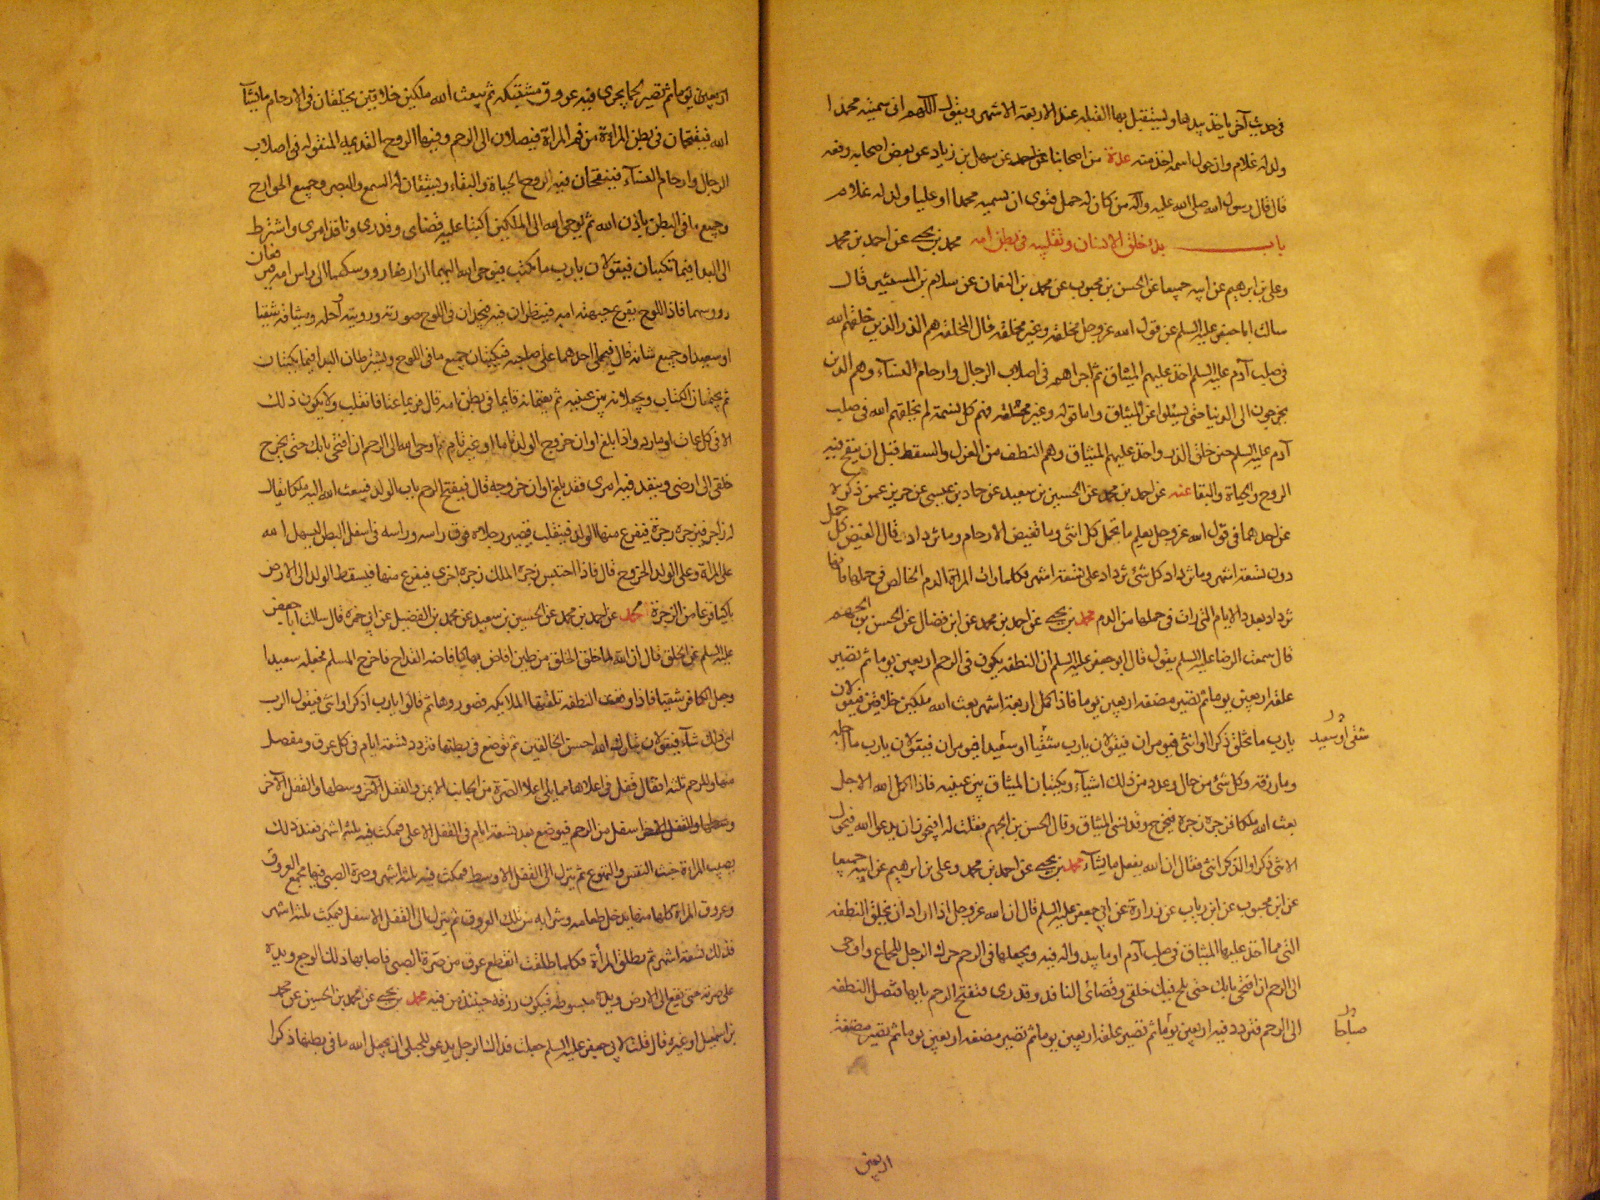 في حديث آخر ياخذ بيدها ويستقبل بها القبلة عند الاربعة الاشهر ويقول اللهم اني سميته محمدا
ولد له غلام وان حول اسمه اخذ منه عدة من اصحابنا عن احمد عن سهل بن زياد عن بعض اصحابه رفعه
قال قال رسول الله صلى الله عليه وآله من كان له حمل فنوى ان يسميه محمدا او عليا ولد له غلام
باب بدء خلق الانسان وتقلبه في بطن امه محمد بن يحيى عن احمد بن محمد
وعلي بن ابرهيم عن ابيه جميعا عن الحسن بن محبوب عن محمد بن النعمان عن سلام بن المستنير قال
سالت ابا جعفر عليه السلم عن قول الله عز وجل مخلقة وغير مخلقة قال المخلقة هم الذر الذين خلقهم الله
في صلب آدم عليه السلم اخذ عليهم الميثاق ثم اجراهم في اصلاب الرجال وارحام النساء وهم الذين
يخرجون الى الدنيا حتى يسئلوا عن الميثاق واما قوله وغير مخلقة فهم كل نسمة لم يخلقهم الله في صلب
آدم عليه السلم حين خلق الذر واخذ عليهم الميثاق وهم النطف من العزل والسقط قبل ان ينفخ فيه
الروح والحياة والبقا عنه عن احمد بن محمد عن الحسين بن سعيد عن حماد بن عيسى عن حريز عمن ذكره
عن احدهما في قول الله عز وجل يعلم ما تحمل كل انثى وما تغيض الارحام وما تزداد قال الغيض كل حمل
دون تسعة اشهر وما تزداد كل شئ تزداد على تسعة اشهر فكلما رات المراة الدم الخالص في حملها فانها
تزداد بعدد الايام التي رات في حملها من الدم محمد بن يحيى عن احمد بن محمد عن ابن فضال عن الحسن بن الجهم
قال سمعت الرضا عليه السلم يقول قال ابو جعفر عليه السلم ان النطفة تكون في الرحم اربعين يوما ثم تصير
علقة اربعين يوما ثم تصير مضغة اربعين يوما فاذا كمل اربعة اشهر بعث الله ملكين خلاقين فيقولان
يا رب ما تخلق ذكرا او انثى فيومران فيقولان يا رب شقيا او سعيدا فيومران فيقولان يا رب ما اجله
شقي او سعيد
وما رزقه وكل شئ من حاله وعدد من ذلك اشياء ويكتبان الميثاق بين عينيه فاذا اكمل الله الاجل
بعث الله ملكا فزجره زجرة فيخرج وقد نسي الميثاق وقال الحسن بن الجهم فقلت له افيجوز ان يدعو الله فيحول
الانثى ذكرا والذكر انثى فقال ان الله يفعل ما يشاء محمد بن يحيى عن احمد بن محمد وعلي بن ابرهيم عن ابيه جميعا
عن ابن محبوب عن ابن رياب عن زرارة عن ابي جعفر عليه السلم قال ان الله عز وجل اذا اراد ان يخلق النطفة
التي مما اخذ عليها الميثاق في صلب آدم او ما يبدو له فيه ويجعلها في الرحم حرك الرجل للجماع واوحى
الى الرحم ان افتحي بابك حتى يلج فيك خلقي وقضائي النافذ وقدري فتفتح الرحم بابها فتصل النطفة
الى الرحم فتردد فيه اربعين يوما ثم تصير علقة اربعين يوما ثم تصير مضغة اربعين يوما ثم تصير مضغة
صباحا
اربعين
اربعين يوما ثم تصير لحما يجري فيه عروق مشتبكة ثم يبعث الله ملكين خلاقين يخلقان في الارحام ما يشاء
الله فيقتحمان في بطن المراة من فم المراة فيصلان الى الرحم وفيها الروح القديمة المنقولة في اصلاب
الرجال وارحام النساء فينفخان فيه الروح الحياة والبقاء ويشقان له السمع والبصر وجميع الجوارح
وجميع ما في البطن باذن الله ثم يوحي الله الى الملكين اكتبا عليه قضاي وقدري ونافذ امري واشترطا
لي البدا فيما تكتبان فيقولان يا رب ما نكتب فيوحي الله اليهما ان ارفعا رووسكما الى راس امه فيرفعان
رووسهما فاذا اللوح يقرع جبهة امه فينظران فيه فيجدان في اللوح صورته ورويته واجله وميثاقه شقيا
او سعيدا وجميع شانه قال فيملي احدهما على صاحبه فيكتبان جميع ما في اللوح ويشترطان البدا فيما يكتبان
ثم يختمان الكتاب ويجعلانه بين عينيه ثم يقيمانه قايما في بطن امه قال فربما عتا فانقلب ولا يكون ذلك
الا في كل عات او مارد واذا بلغ اوان خروج الولد تاما او غير تام اوحى الله الى الرحم ان افتحي بابك حتى يخرج
خلقي الى ارضي وينفذ فيه امري فقد بلغ اوان خروجه قال فيفتح الرحم باب الولد فيبعث الله اليه ملكا يقال
له زاجر فيزجره زجرة فيفزع منها الولد فينقلب فيصير رجلاه فوق راسه وراسه في اسفل البطن ليسهل الله
على المراة وعلى الولد الخروج قال فاذا احتبس زجره الملك زجرة اخرى فيفزع منها فيسقط الولد الى الارض
باكيا فزعا من الزجرة محمد عن احمد بن محمد عن الحسين بن سعيد عن محمد بن الفضيل عن ابي حمزة قال سالت ابا جعفر
عليه السلم عن الخلق قال ان الله لما خلق الخلق من طين افاض بها كافاضة القداح فاخرج المسلم فجعله سعيدا
وجعل الكافر شقيا فاذا وقعت النطفة تلقتها الملايكة فصوروها ثم قالوا يا رب اذكرا او انثى فيقول الرب
اي ذلك شاء فيقولان تبارك الله احسن الخالقين ثم توضع في بطنها فتردد تسعة ايام في كل عرق ومفصل
منها وللرحم ثلثة اقفال قفل في اعلاها مما يلي اعلا السرة من الجانب الايمن والقفل الآخر وسطها والقفل الآخر
اسفل من الرحم فيوضع بعد تسعة ايام في القفل الاعلى فيمكث فيه ثلثة اشهر فعند ذلك
يصيب المراة خبث النفس والتهوع ثم ينزل الى القفل الاوسط فيمكث فيه ثلثة اشهر وصرة الصبي فيها مجمع العروق
وعروق المراة كلها منها يدخل طعامه وشرابه من تلك العروق ثم ينزل الى القفل الاسفل فيمكث ثلثة اشهر
فذلك تسعة اشهر ثم تطلق المراة فكلما طلقت انقطع عرق من صرة الصبي فاصابها ذلك الوجع ويده
على صرته حتى يقع الى الارض ويده مبسوطة فيكون رزقه حينئذ من فيه محمد بن يحيى عن محمد بن الحسين عن محمد
بن اسمعيل او غيره قال قلت لابي جعفر عليه السلم جعلت فداك الرجل يدعو للحبلى ان يجعل الله ما في بطنها ذكرا